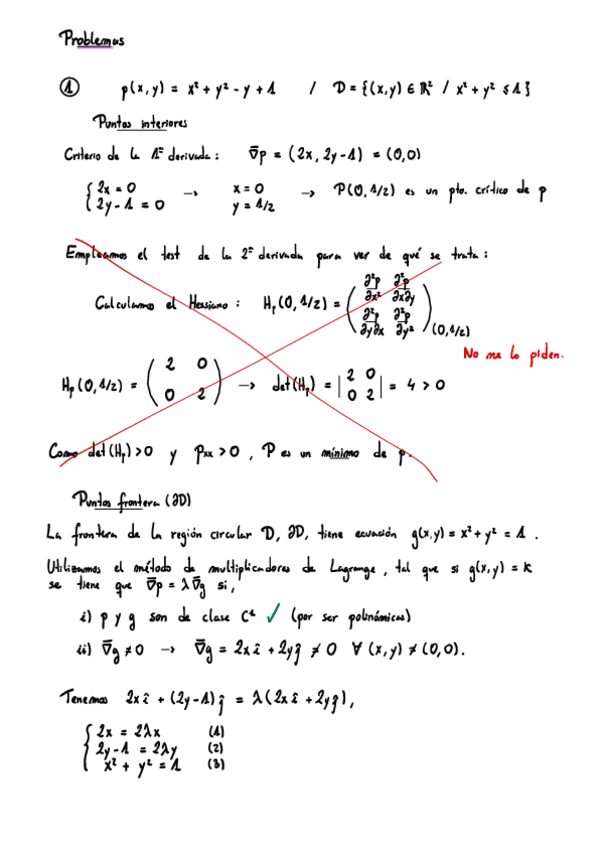 Problemas
① p(x,y) = x² + y² - y + 1 / D = {(x,y) ∈ ℝ² / x² + y² ≤ 1}
Puntos interiores
Criterio de la 1ª derivada: ∇̄p = (2x, 2y-1) = (0,0)
{ 2x = 0 → x = 0 → P(0,1/2) es un pto. crítico de p
{ 2y - 1 = 0 y = 1/2
Empleamos el test de la 2ª derivada para ver de qué se trata:
Calculamos el Hessiano: Hₚ(0,1/2) = ( ∂²p/∂x² ∂²p/∂x∂y ; ∂²p/∂y∂x ∂²p/∂y² )(0,1/2)
No me lo piden.
Hₚ(0,1/2) = ( 2 0 ; 0 2 ) → det(Hₚ) = | 2 0 ; 0 2 | = 4 > 0
Como det(Hₚ) > 0 y pxx > 0, P es un mínimo de p.
Puntos frontera (∂D)
La frontera de la región circular D, ∂D, tiene ecuación g(x,y) = x² + y² = 1.
Utilizamos el método de multiplicadores de Lagrange, tal que si g(x,y) = k
se tiene que ∇̄p = λ∇̄g si,
i) p y g son de clase C¹ ✓ (por ser polinómicas)
ii) ∇̄g ≠ 0 → ∇̄g = 2x î + 2y ĵ ≠ 0 ∀ (x,y) ≠ (0,0).
Tenemos 2x î + (2y-1) ĵ = λ(2x î + 2y ĵ),
{ 2x = 2λx (1)
{ 2y - 1 = 2λy (2)
{ x² + y² = 1 (3)